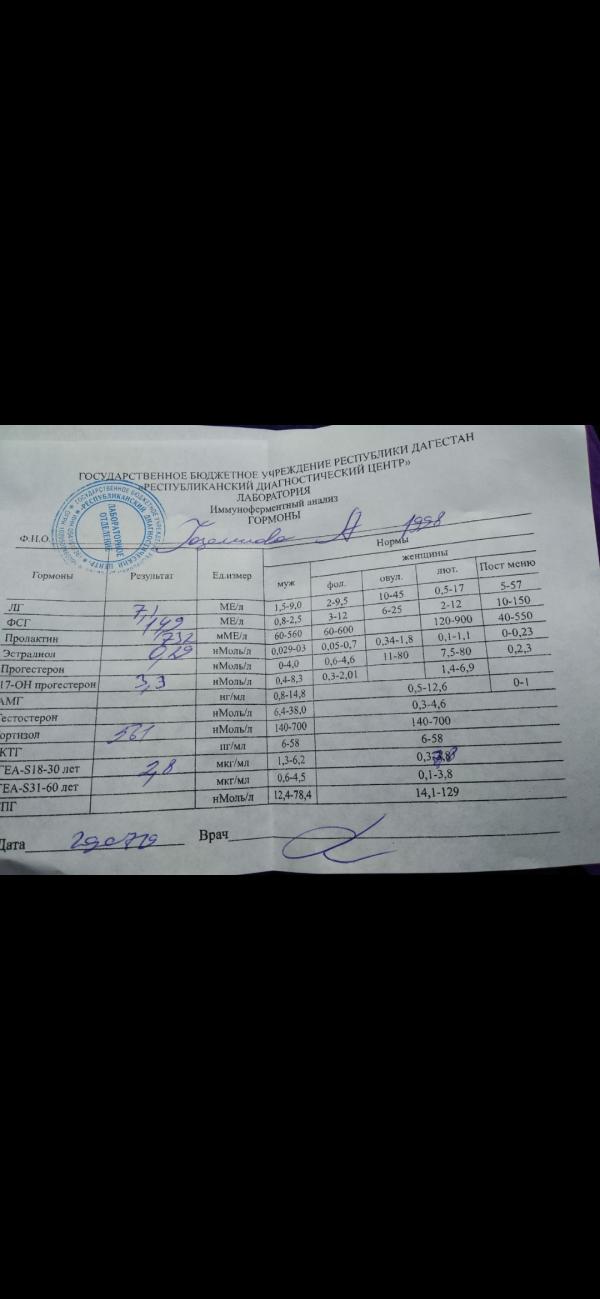 ГОСУДАРСТВЕННОЕ БЮДЖЕТНОЕ УЧРЕЖДЕНИЕ РЕСПУБЛИКИ ДАГЕСТАН
«РЕСПУБЛИКАНСКИЙ ДИАГНОСТИЧЕСКИЙ ЦЕНТР»
ЛАБОРАТОРИЯ
Иммуноферментый анализ
ГОРМОНЫ
ЛАБОРАТОРНОЕ ОТДЕЛЕНИЕ
Ф.И.О. А 1998
Гормоны Результат Ед.измер Нормы
муж женщины
фол. овул. лют. Пост меню
ЛГ 7,1 МЕ/л 1,5-9,0 2-9,5 10-45 0,5-17 5-57
ФСГ МЕ/л 0,8-2,5 3-12 6-25 2-12 10-150
Пролактин 732 мМЕ/л 60-560 60-600 120-900 40-550
Эстрадиол 0,29 нМоль/л 0,029-03 0,05-0,7 0,34-1,8 0,1-1,1 0-0,23
Прогестерон нМоль/л 0-4,0 0,6-4,6 11-80 7,5-80 0,2,3
17-ОН прогестерон 3,3 нМоль/л 0,4-8,3 0,3-2,01 1,4-6,9
АМГ нг/мл 0,8-14,8 0,5-12,6 0-1
Тестостерон нМоль/л 6,4-38,0 0,3-4,6
ортизол 561 нМоль/л 140-700 140-700
КТГ пг/мл 6-58 6-58
ГЕА-S18-30 лет 2,8 мкг/мл 1,3-6,2
ГЕА-S31-60 лет мкг/мл 0,6-4,5 0,1-3,8
СПГ нМоль/л 12,4-78,4 14,1-129
Дата Врач